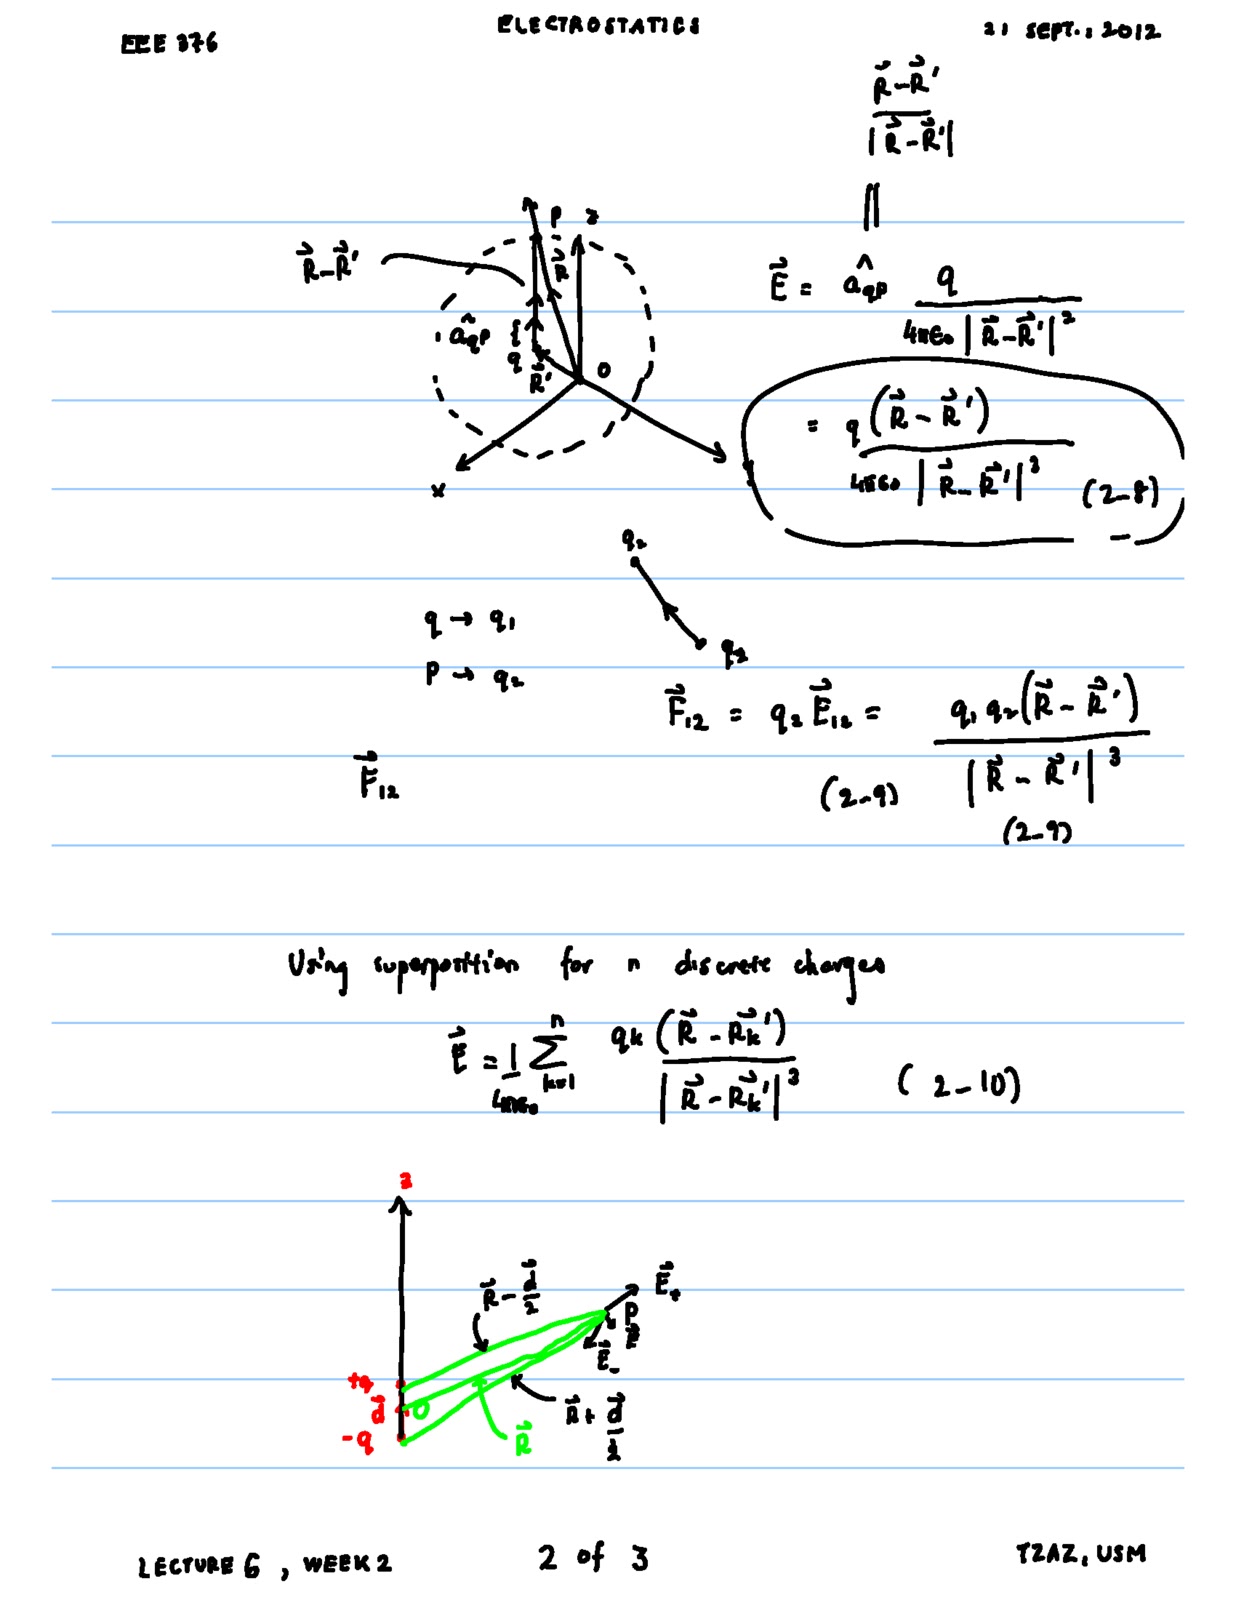 EEE 376 ELECTROSTATICS 21 SEPT., 2012
R⃗-R⃗'
|R⃗-R⃗'|
||
P z
R⃗-R⃗' R⃗
E⃗ = â_qp q
4πε₀|R⃗-R⃗'|²
â_qp {
q O
R⃗'
= q(R⃗-R⃗')
4πε₀|R⃗-R⃗'|³ (2-8)
x
q₂
q → q₁
q₂
P → q₂
F⃗₁₂ = q₂E⃗₁₂ = q₁q₂(R⃗-R⃗')
|R⃗-R⃗'|³
F⃗₁₂ (2-9)
(2-9)
Using superposition for n discrete charges
E⃗ = 1/4πε₀ Σ_{k=1}^{n} qk(R⃗-R⃗k')
|R⃗-R⃗k'|³ (2-10)
z
R⃗-d⃗/2 E⃗₊
P
E⃗₋
+q
d⃗ O R⃗+d⃗/2
-q R⃗
LECTURE 6, WEEK 2 2 of 3 TZAZ, USM